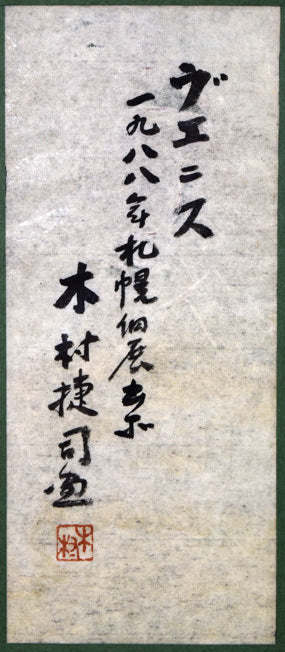 ヴエニス
一九八八年札幌個展出品
木村捷司画
木村